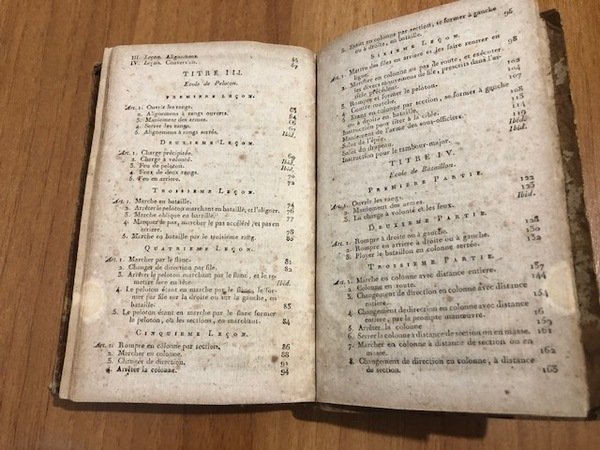 III. Leçon. Alignemens. 45
IV. Leçon. Conversion. 47
TITRE III.
Ecole de Peloton.
PREMIERE LEÇON.
Art. 1. Ouvrir les rangs.
2. Alignemens à rangs ouverts. 64
3. Maniement des armes.
4. Serrer les rangs.
5. Alignemens à rangs serrés. Ibid.
DEUXIEME LEÇON.
Art. 1. Charge précipitée. 69
2. Charge à volonté. Ibid.
3. Feu de peloton.
4. Feux de deux rangs. 70
5. Feu en arriere. 72
TROISIEME LEÇON.
Art. 1. Marche en bataille. 74
2. Arrêter le peloton marchant en bataille, et l'aligner. 76
3. Marche oblique en bataille. 77
4. Marquer le pas, marcher le pas accéléré, et en
arriere. 78
5. Marche en bataille par le troisieme rang. 80
QUATRIEME LEÇON.
Art. 1. Marcher par le flanc. 81
2. Changer de direction par file. 82
3. Arrêter le peloton marchant par le flanc, et le re-
mettre face en tête. Ibid.
4. Le peloton étant en marche par le flanc, le for-
mer par file sur la droite ou sur la gauche, en
bataille. 83
5. Le peloton étant en marche par le flanc, former
le peloton, ou les section, en marchant. 84
CINQUIEME LEÇON.
Art. 1. Rompre en colonne par section. 86
2. Marcher en colonne. 88
3. Changer de direction. 92
4. Arrêter la colonne. 94
5. Etant en colonne par section, se former à gauche
ou à droite, en bataille. 96
SIXIEME LEÇON.
Art. 1. Mettre des files en arriere, et les faire rentrer en
ligne. 98
2. Marcher en colonne au pas de route, et exécuter
les divers mouvemens de file, prescrits dans l'ar-
ticle précédent.
3. Rompre et former le peloton. 104
4. Contre-marche. 107
5. Etant en colonne par section, se former à gauche
ou à droite en bataille.
Instruction pour tirer à la cible.
Maniement de l'arme des sous-officiers.
Salut de l'épée. 118
Salut du drapeau. 119
Instruction pour le tambour-major. Ibid.
TITRE IV.
Ecole de Bataillon.
PREMIERE PARTIE.
Art. 1. Ouvrir les rangs. 122
2. Maniement des armes. 123
3. La charge à volonté et les feux. Ibid.
DEUXIEME PARTIE.
Art. 1. Rompre à droite ou à gauche. 128
2. Rompre en arriere à droite ou à gauche. 130
3. Ployer le bataillon en colonne serrée. 132
TROISIEME PARTIE.
Art. 1. Marche en colonne avec distance entiere. 137
2. Colonne en route. 144
3. Changement de direction en colonne avec distance
entiere. 154
4. Changement de direction en colonne avec distance
entiere, par la prompte manœuvre.
5. Arrêter la colonne. 160
6. Serrer la colonne à distance de section ou en masse. 161
7. Marcher en colonne à distance de section ou en
masse. 162
8. Changement de direction en colonne, à distance
de section. 163